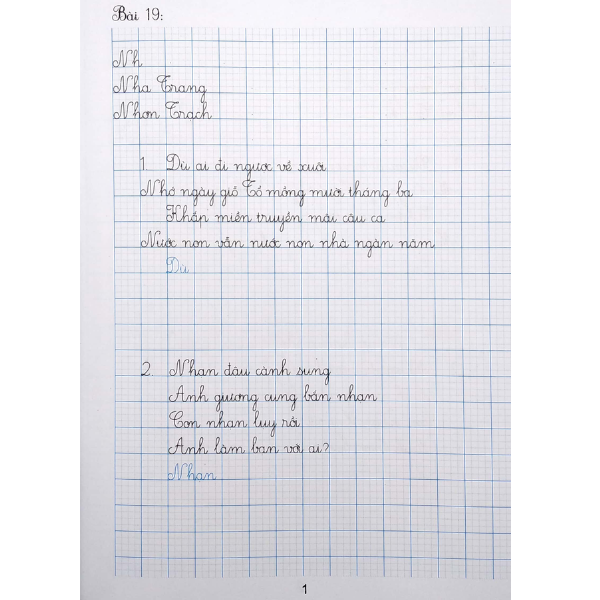 Bài 19:
Nh
Nha Trang
Nhơn Trạch
1 Dù ai đi ngược về xuôi
Nhớ ngày giỗ Tổ mồng mười tháng ba
Khắp miền truyền mãi câu ca
Nước non vẫn nước non nhà ngàn năm
Dù
2. Nhạn đậu cành sung
Anh giương cung bắn nhạn
Con nhạn luỵ rồi
Anh làm bạn với ai?
Nhạn
1